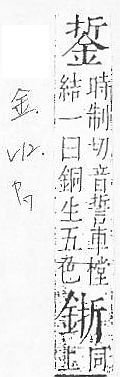 銴
時制切音誓車樘
結一曰銅生五色
同
上
金.
V12.
P7